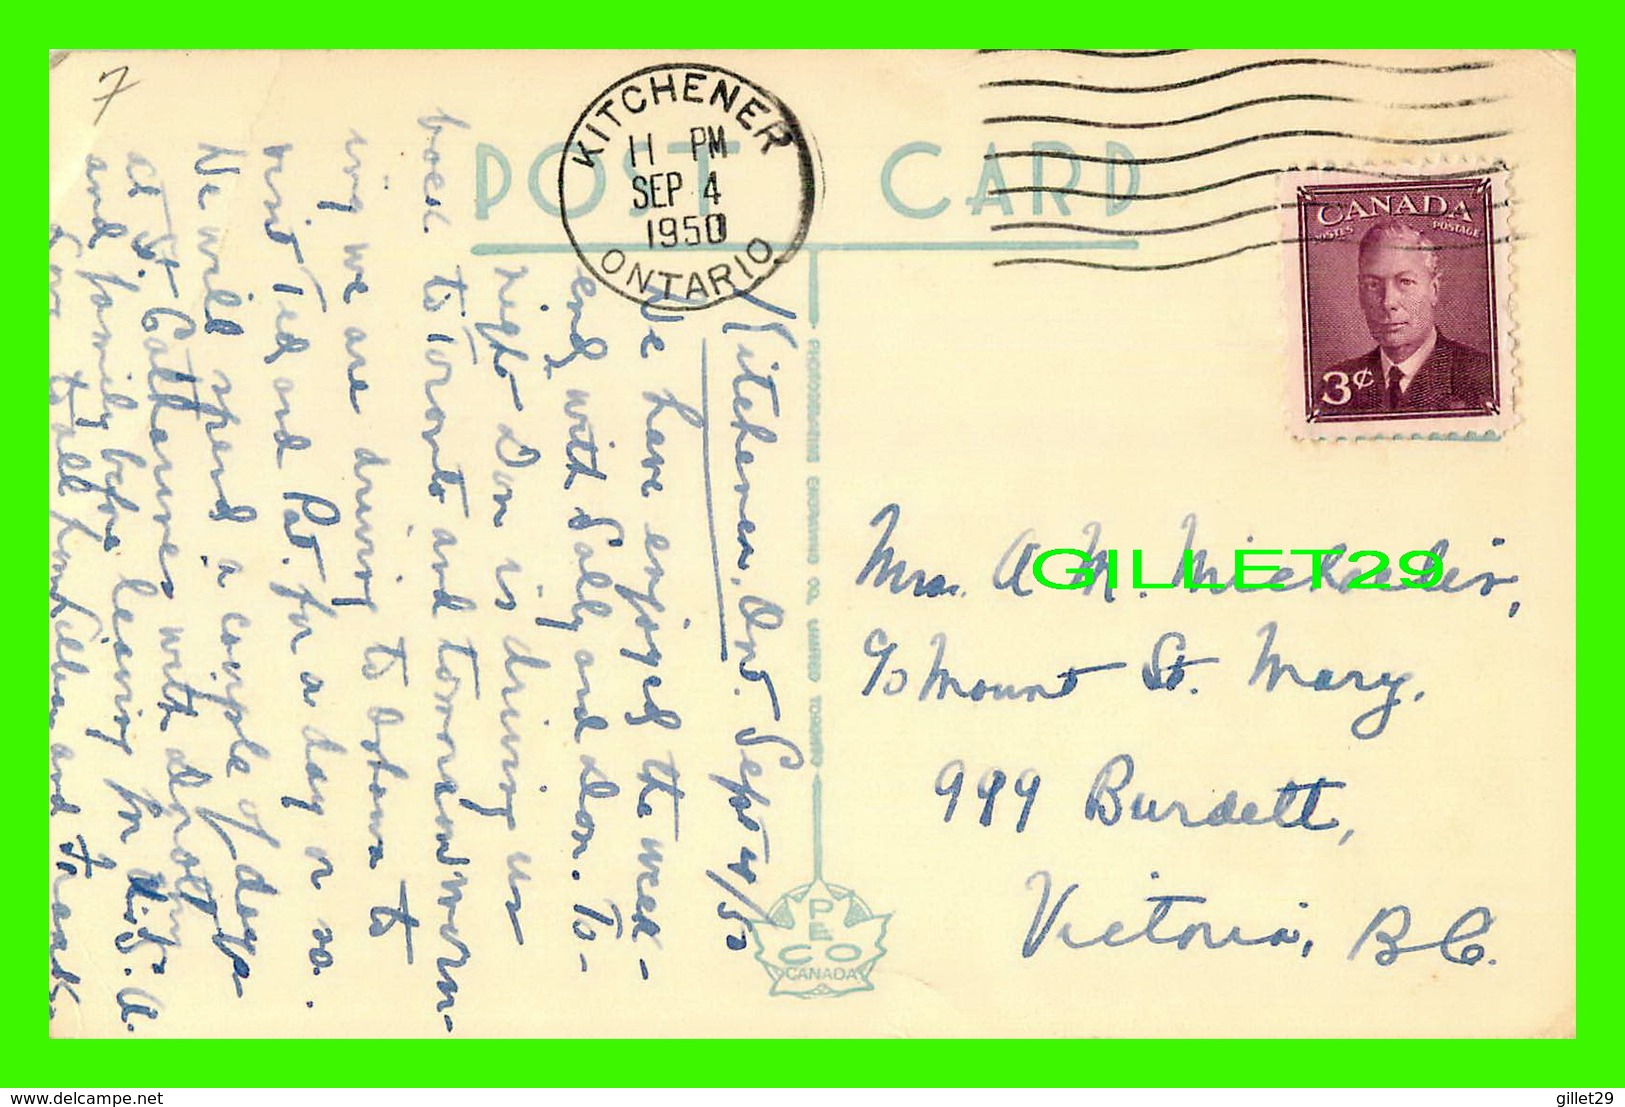 7
KITCHENER
11 PM
SEP 4
1950
ONTARIO
POST CARD
CANADA
POSTES POSTAGE
3¢
Kitchener. Ont. Sept 4/50
We have enjoyed the week-
end with Sally and Don. To-
night Don is driving us
back to Toronto and tomorrow morn-
ing we are driving to to
visit Ted and Pat. for a day or so.
We will spend a couple of days
at St Catharines with Dorothy
and family before leaving for U.S.A.
Love to all from and Frank.
PECO
CANADA
Mrs. A. M.
c/o Mount St. Mary,
999 Burdett,
Victoria, B.C.
GILLET29
delcampe.net
gillet29